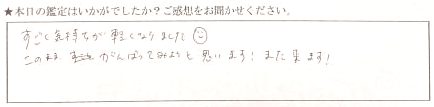 ★本日の鑑定はいかがでしたか？ご感想をお聞かせください。
すごく気持ちが軽くなりました
このまま がんばってみようと思います！また来ます！